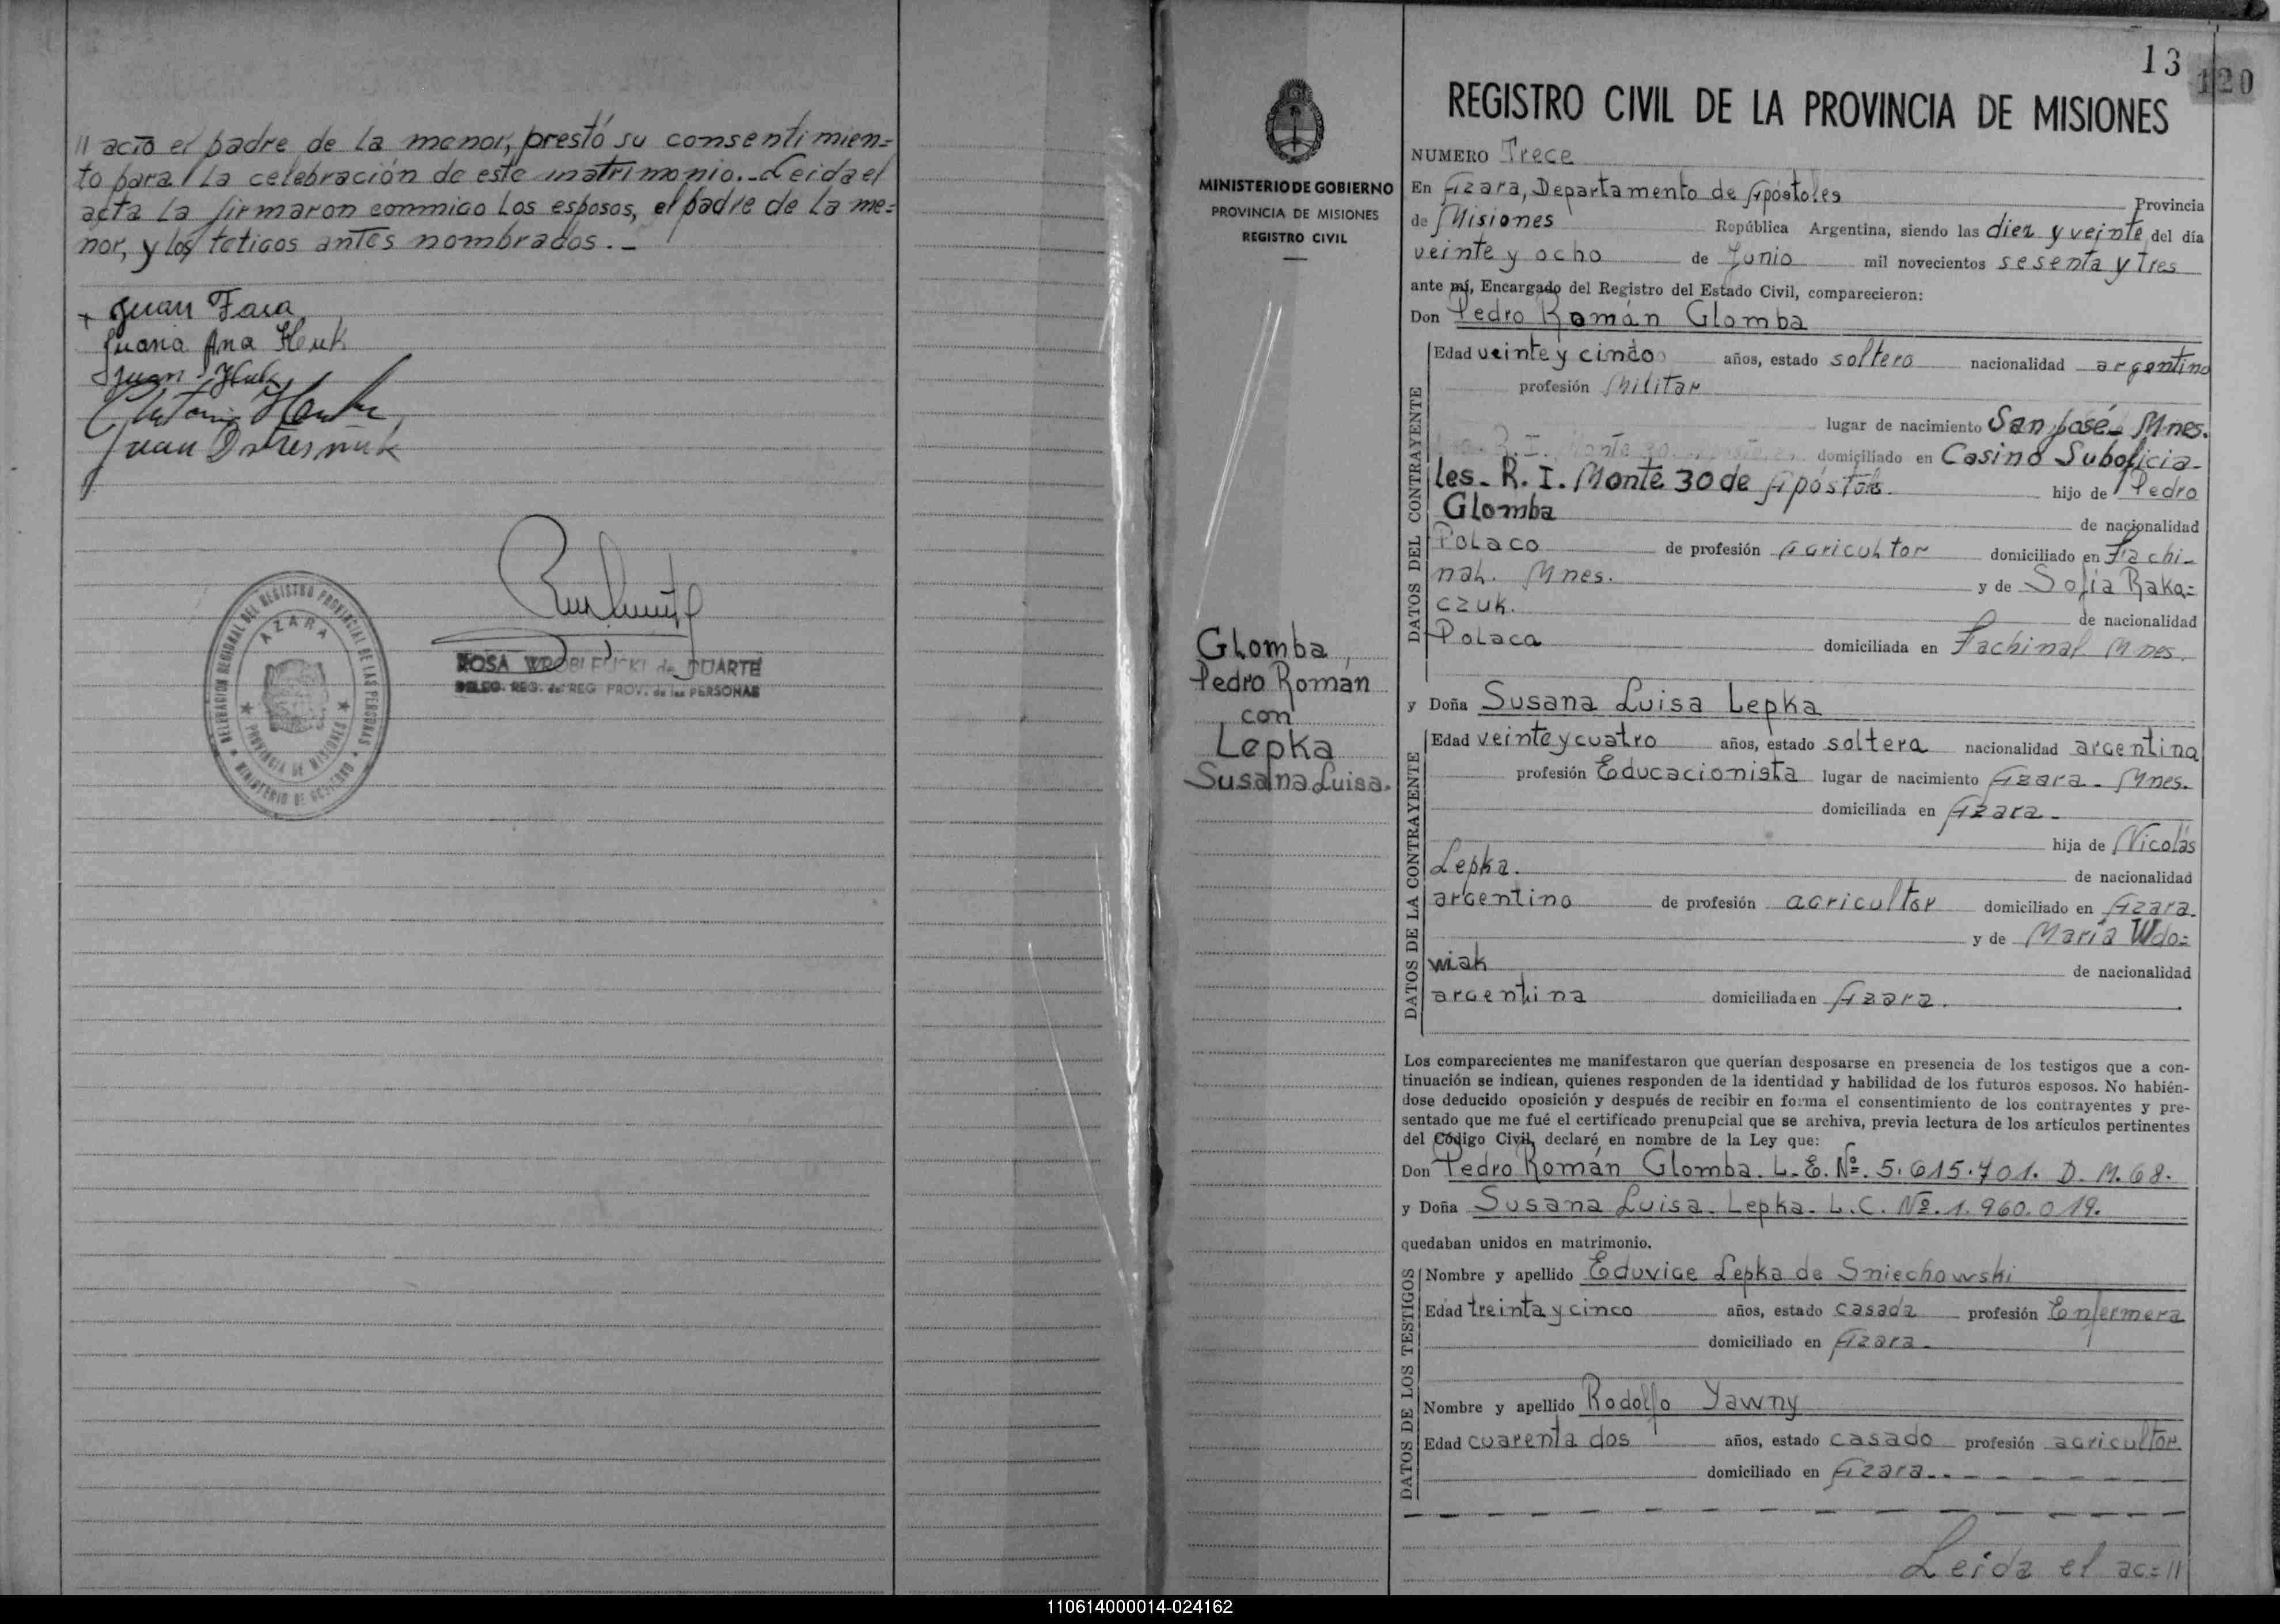 // acto el padre de la menor, prestó su consentimien=
to para la celebración de este matrimonio.- Leida el
acta la firmaron conmigo los esposos, el padre de la me=
nor, y los teticos antes nombrados.-
Juan
Juana Ana
Juan
Juan
DELEGACION REGIONAL DEL REGISTRO PROVINCIAL DE LAS PERSONAS
AZARA
PROVINCIA DE MISIONES
MINISTERIO DE GOBIERNO
ROSA WROBLEUCKI de DUARTE
DELEG. REG. del REG PROV. de las PERSONAS
MINISTERIO DE GOBIERNO
PROVINCIA DE MISIONES
REGISTRO CIVIL
Glomba,
Pedro Román
con
Lepka
Susana Luisa.
13
120
REGISTRO CIVIL DE LA PROVINCIA DE MISIONES
NUMERO Trece
En Azara, Departamento de Apóstoles Provincia
de Misiones República Argentina, siendo las diez y veinte del día
veinte y ocho de Junio mil novecientos sesenta y tres
ante mí, Encargado del Registro del Estado Civil, comparecieron:
Don Pedro Román Glomba
DATOS DEL CONTRAYENTE
Edad veinte y cinco años, estado soltero nacionalidad argentino
profesión Militar
lugar de nacimiento San José- Mnes.
domiciliado en Casino Suboficia-
les- R. I. Monte 30 de Apóstoles. hijo de Pedro
Glomba de nacionalidad
Polaco de profesión agricultor domiciliado en Fachi-
nal. Mnes. y de Sofía Raka=
czuk. de nacionalidad
Polaca domiciliada en Fachinal Mnes.
y Doña Susana Luisa Lepka
DATOS DE LA CONTRAYENTE
Edad veinte y cuatro años, estado soltera nacionalidad argentina
profesión Educacionista lugar de nacimiento Azara- Mnes.
domiciliada en Azara-
hija de Nicolás
Lepka. de nacionalidad
argentino de profesión agricultor domiciliado en Azara.
y de María Wdo=
wiak de nacionalidad
argentina domiciliada en Azara.
Los comparecientes me manifestaron que querían desposarse en presencia de los testigos que a con-
tinuación se indican, quienes responden de la identidad y habilidad de los futuros esposos. No habién-
dose deducido oposición y después de recibir en forma el consentimiento de los contrayentes y pre-
sentado que me fué el certificado prenupcial que se archiva, previa lectura de los artículos pertinentes
del Código Civil, declaré en nombre de la Ley que:
Don Pedro Román Glomba. L.E. Nº. 5.615.701. D.M.68.
y Doña Susana Luisa Lepka. L.C. Nº. 1.960.019.
quedaban unidos en matrimonio.
DATOS DE LOS TESTIGOS
Nombre y apellido Eduvige Lepka de Sniechowski
Edad treinta y cinco años, estado casada profesión Enfermera
domiciliado en Azara-
Nombre y apellido Rodolfo Yawny
Edad cuarenta dos años, estado casado profesión agricultor
domiciliado en Azara.
Leida el ac=//
110614000014-024162